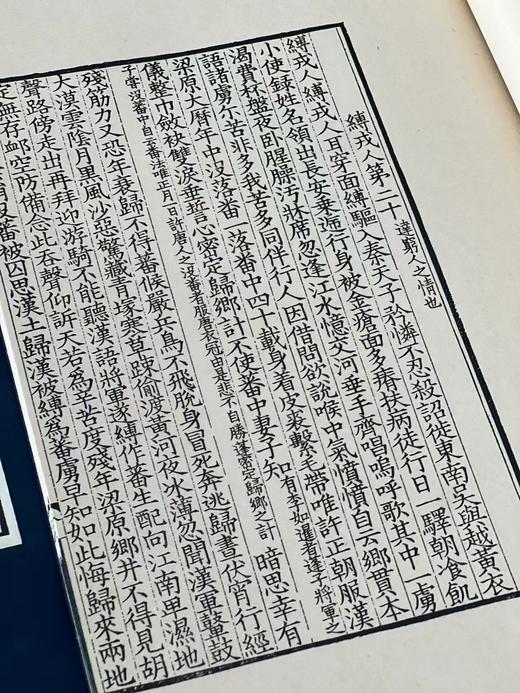 縛戎人第二十 達窮人之情也
縛戎人縛戎人耳穿面縛驅入秦天子矜憐不忍殺詔徙東南吳與越黃衣
小使錄姓名領出長安乘遞行身被金瘡面多瘠扶病徒行日一驛朝飡飢
渴費杯盤夜卧腥臊汚牀席忽逢江水憶交河垂手齊唱嗚呼歌其中一虜
語諸虜尒苦非多我苦多同伴行人因借問欲說喉中氣憤憤自云鄉貫本
梁原大曆年中沒落蕃一落蕃中四十載身着皮裘繫毛帶唯許正朝服漢
儀整巾斂袂雙淚垂誓心密定歸鄉計不使蕃中妻子知 有李如暹者蓬子將軍之
子嘗沒蕃中自云蕃法唯正月一日許唐人之沒蕃者服唐衣冠由是悲不自勝遂密定歸鄉之計 暗思幸有
殘筋力又恐年衰歸不得蕃候嚴兵鳥不飛脫身冒死奔逃歸晝伏宵行經
大漠雲陰月黒風沙惡驚藏青塚寒草踈偷渡黃河夜氷薄忽聞漢軍鼙鼓
聲路傍走出再拜迎游騎不能聽漢語將軍遂縛作蕃生配向江南卑濕地
定無存卹空防備念此吞聲仰訴天若爲辛苦度殘年梁原鄉井不得見胡
沒蕃被囚思漢土歸漢被縛爲蕃虜早知如此悔歸來兩地